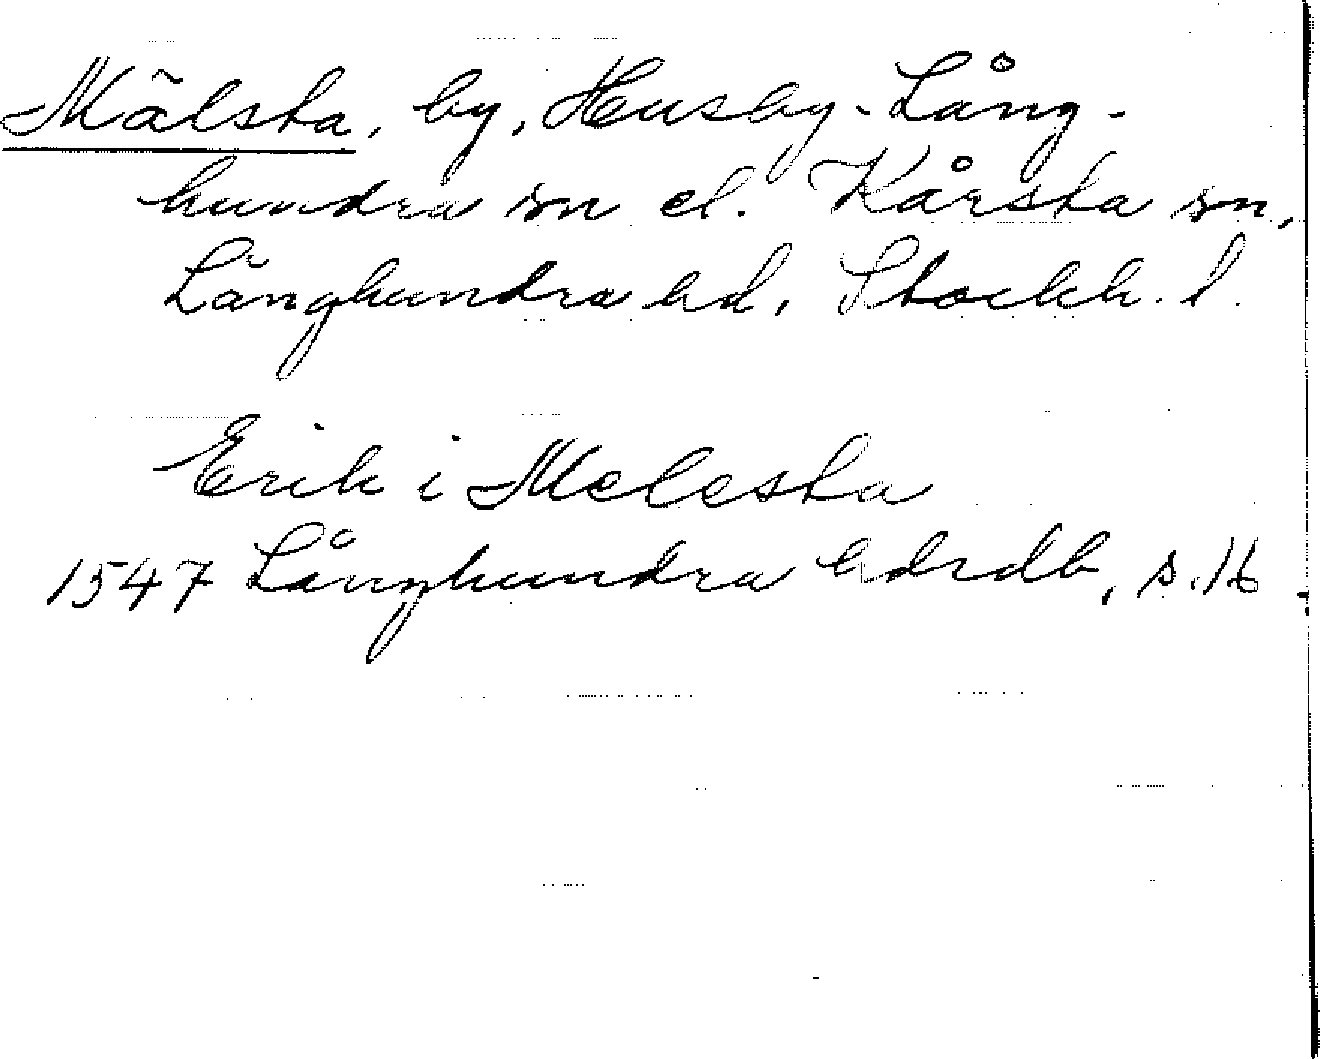 Mälsta, by, Husby-Lång-
hundra sn el. Kårsta sn,
Långhundra hd, Stockh. l.
Erik i Melesta
1547 Långhundra hdrdb, s. 16.